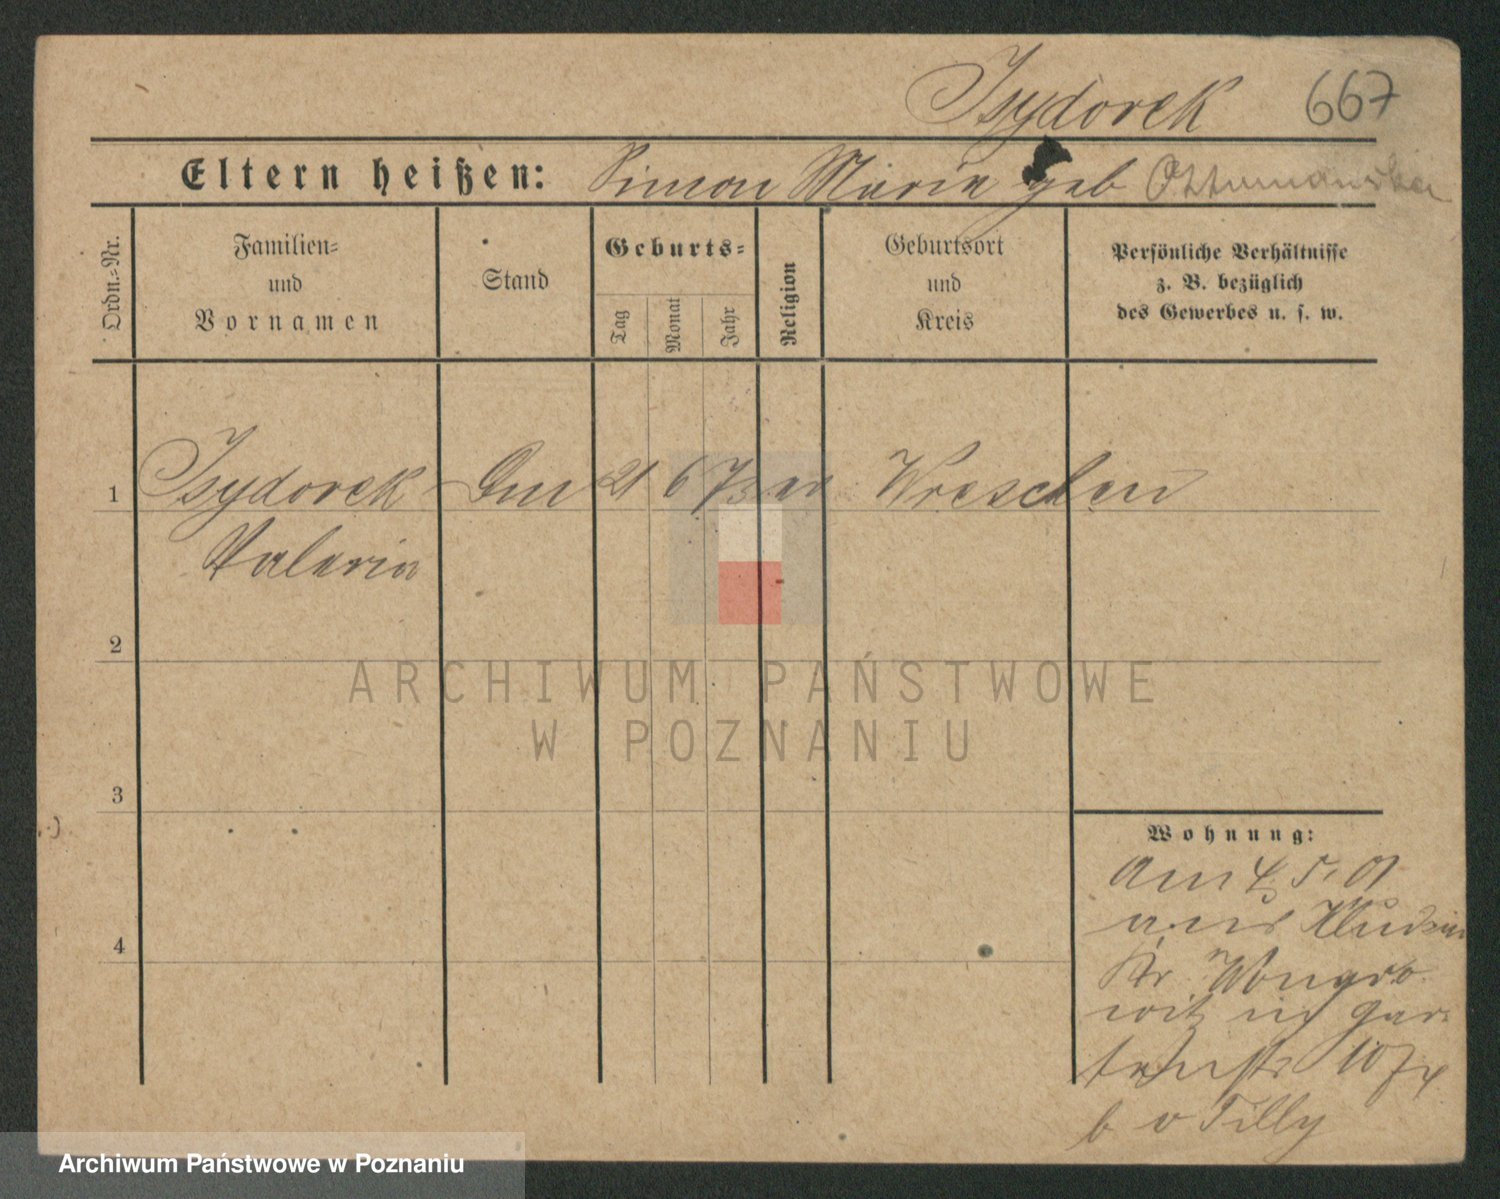 Isydorek 667
Eltern heißen: Simon Maria geb
Ordn.=Nr.
Familien=
und
Vornamen
Stand
Geburts=
Tag
Monat
Jahr
Religion
Geburtsort
und
Kreis
Persönliche Verhältnisse
z. B. bezüglich
des Gewerbes u. s. w.
1 Isydorek 21 6 73 Wreschen
Valeria
2
3
4
Wohnung:
am 4. 5. 01
aus
Kr. Wongro
witz in Gar
tenstr 10
b v Tilly
ARCHIWUM PAŃSTWOWE
W POZNANIU
Archiwum Państwowe w Poznaniu